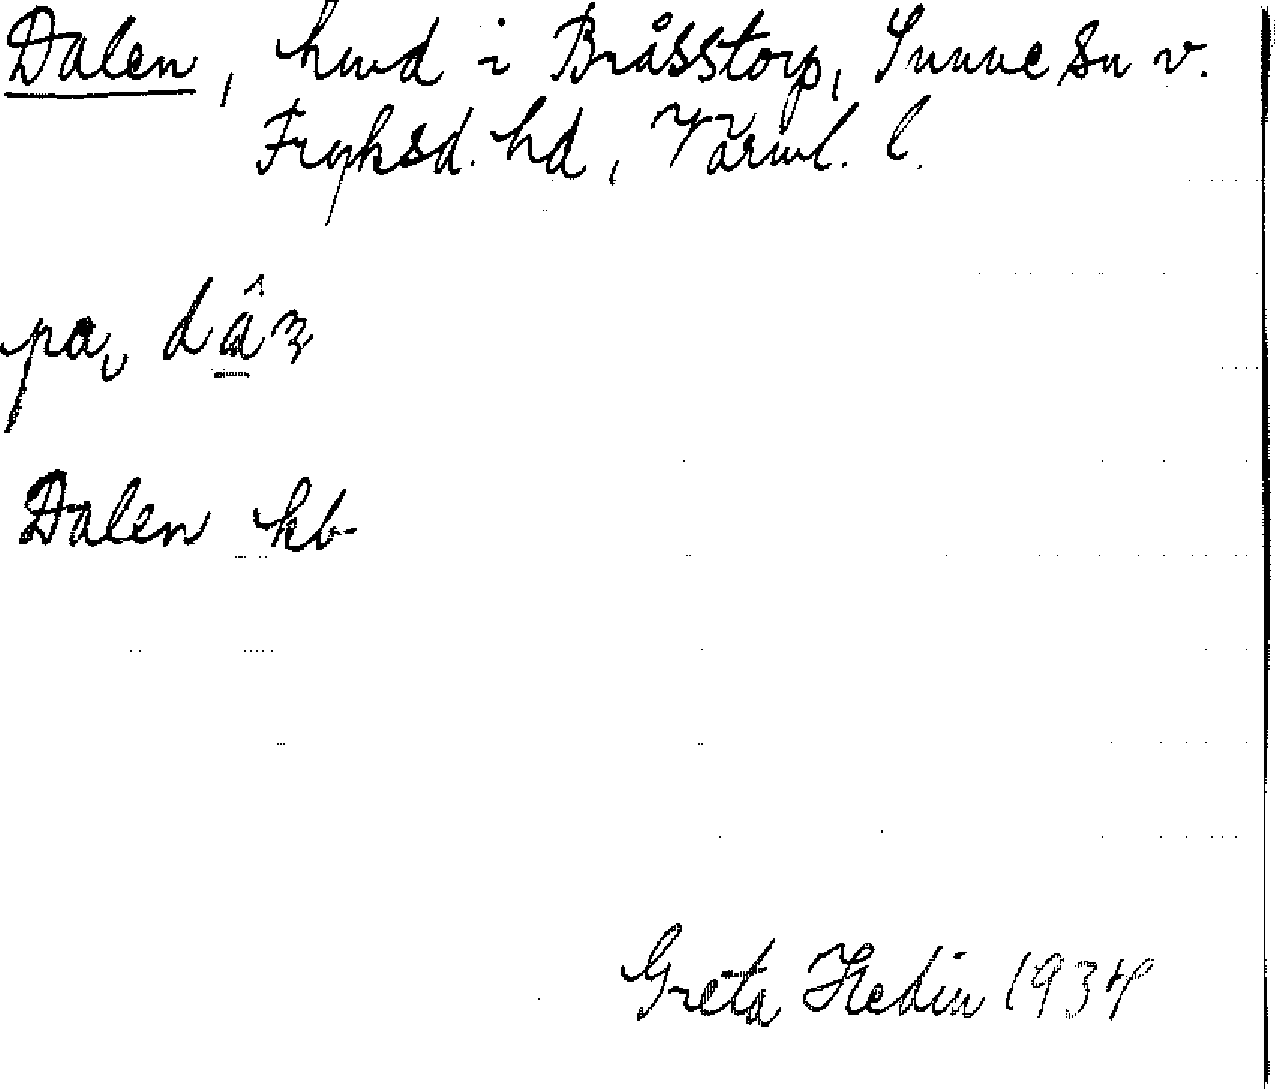 Dalen, hmd i Bråsstorp, Sunne sn v.
Fryksd. hd, Värml. l.
pa,
Dalen kb
Greta Hedin 1934